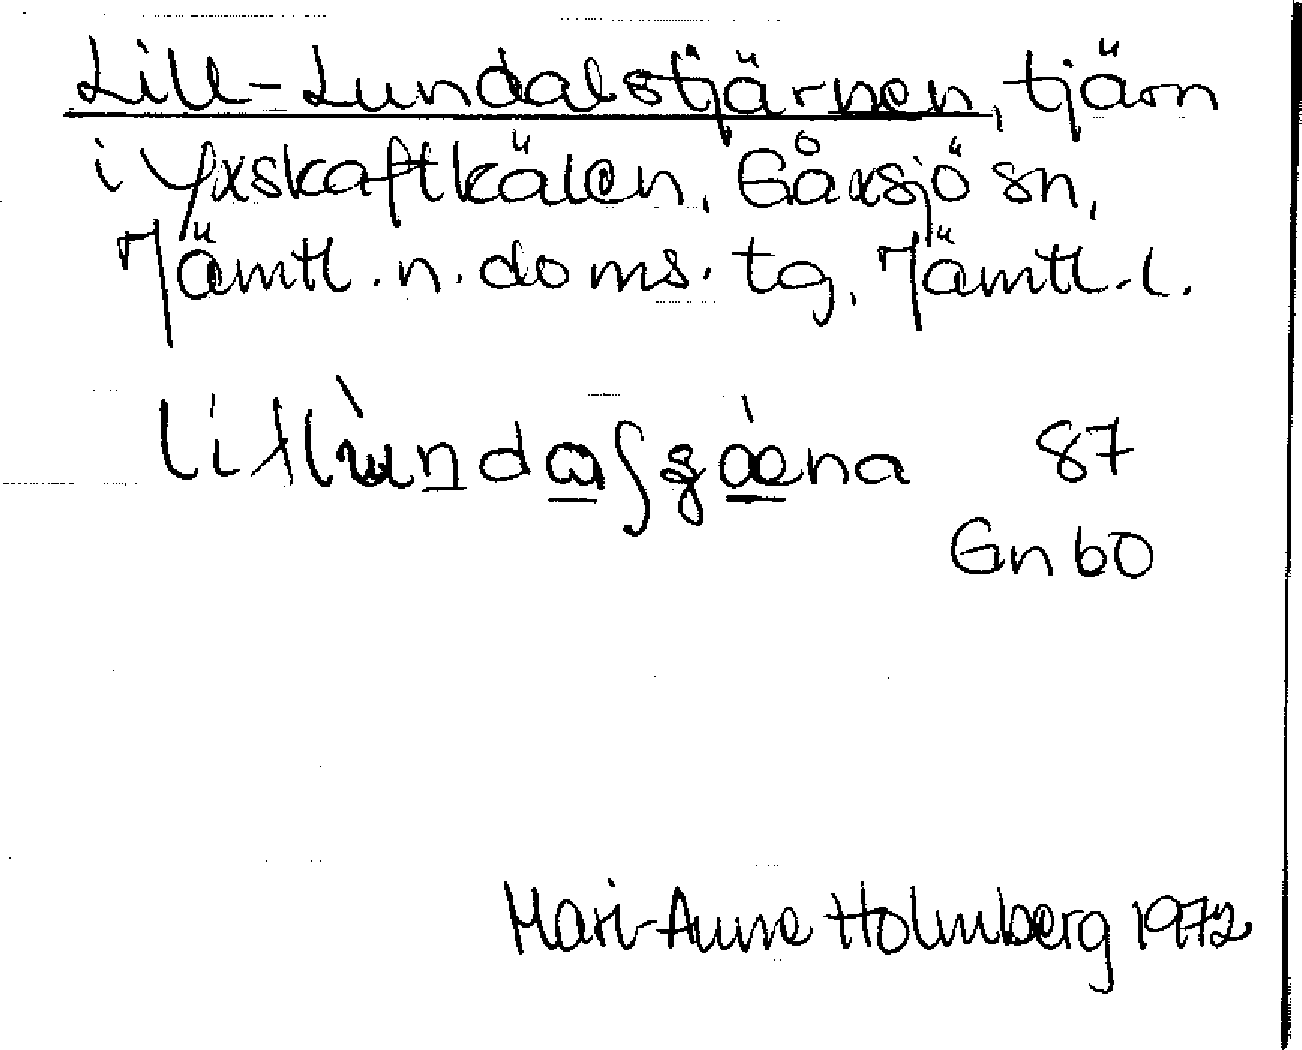 Lill-Lundalstjärnen, tjärn
i Yxskaftkälen, Gåxsjö sn,
Jämtl. n. doms. tg, Jämtl. l.
87
Gn 60
Mari-Anne Holmberg 1972